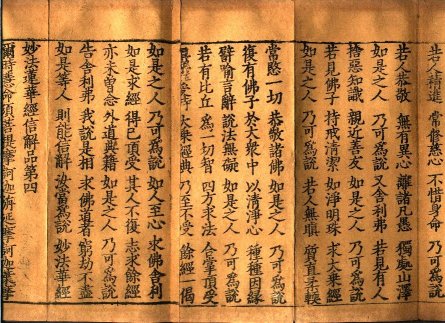 若人精進 常修慈心 不惜身命 乃可爲說
若人恭敬 無有異心 離諸凡愚 獨處山澤
如是之人 乃可爲說 又舍利弗 若見有人
捨惡知識 親近善友 如是之人 乃可爲說
若見佛子 持戒清潔 如淨明珠 求大乘經
如是之人 乃可爲說 若人無瞋 質直柔輭
常愍一切 恭敬諸佛 如是之人 乃可爲說
復有佛子 於大衆中 以清淨心 種種因緣
譬喻言辭 說法無礙 如是之人 乃可爲說
若有比丘 爲一切智 四方求法 合掌頂受
持 大乘經典 乃至不受 餘經 偈
如是之人 乃可爲說 如人至心 求佛舍利
如是求經 得已頂受 其人不復 志求餘經
亦未曾念 外道典籍 如是之人 乃可爲說
告舍利弗 我說是相 求佛道者 窮劫不盡
如是等人 則能信解 汝當爲說 妙法華經
妙法蓮華經信解品第四
爾時慧命須菩提摩訶迦旃延摩訶迦葉摩